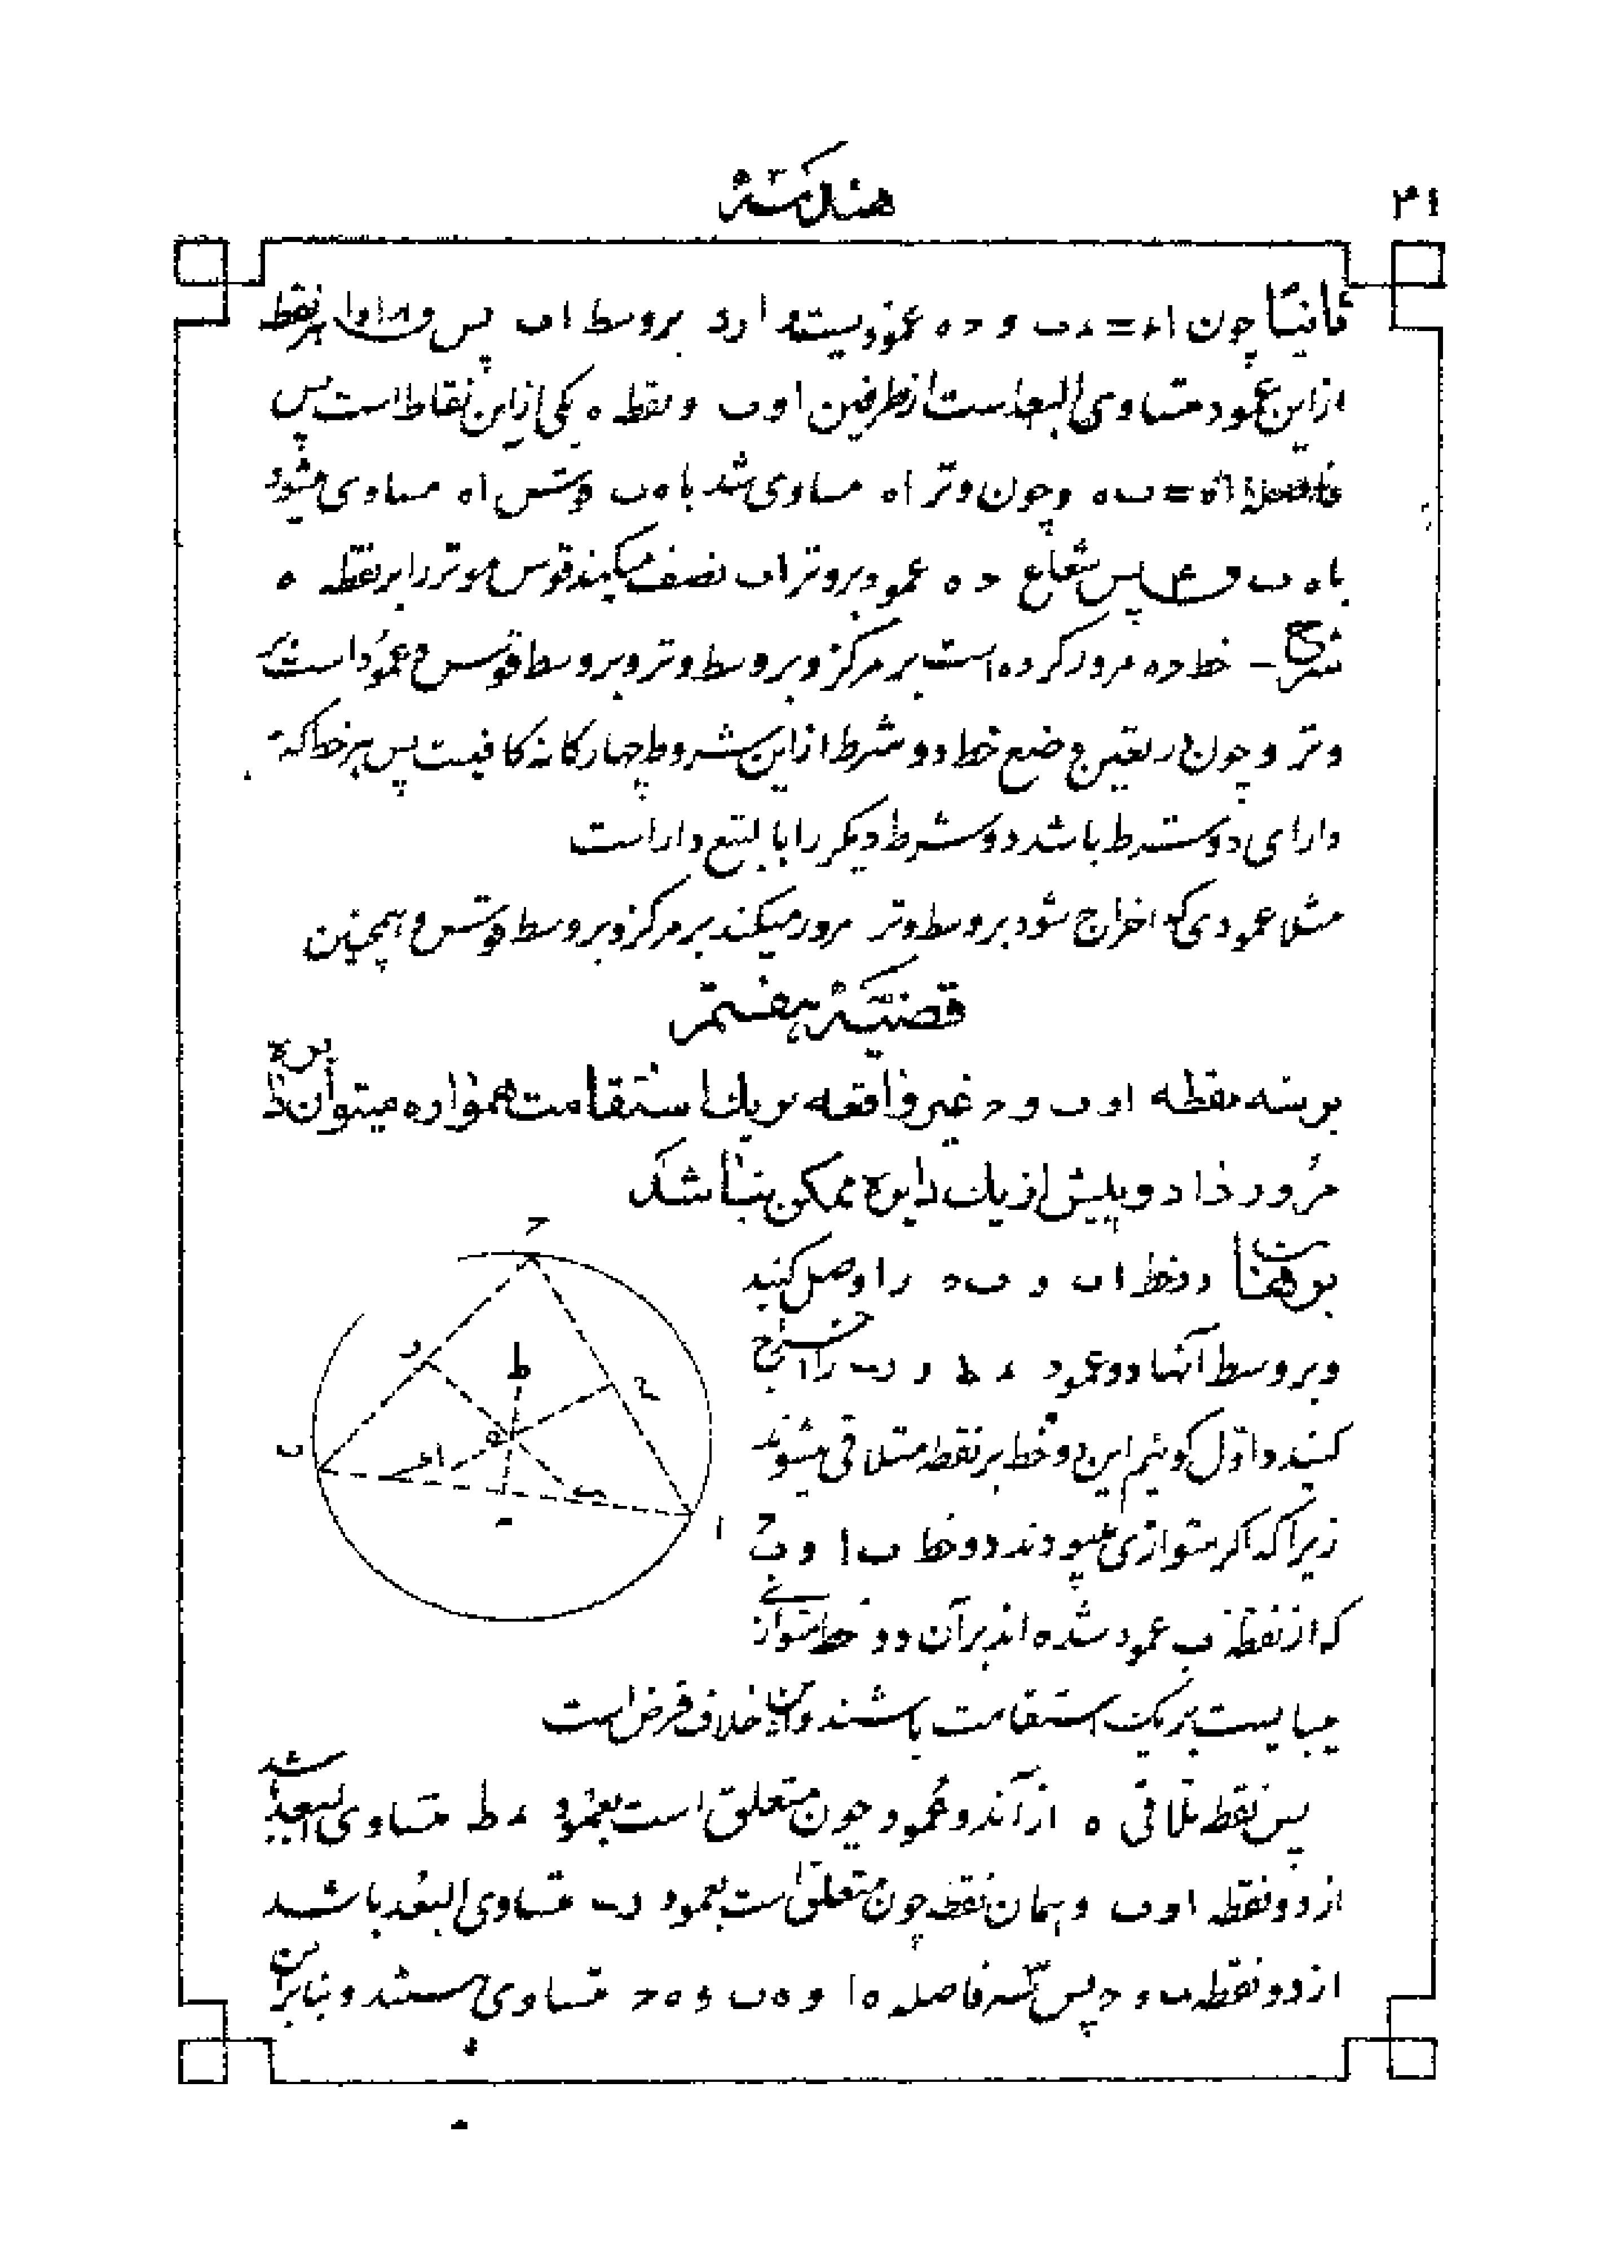 هندسه
۴۱
ثانیاً چون اء = ءب و ده عمودیست وارد بر وسط اب پس هر نقطه
از این عمود متساوی البعد است از طرفین ا و ب و نقطه ه یکی از این نقاط است پس
فاصله اه = ب ه و چون وتر اه مساوی شد با ه ب قوس اه مساوی میشود
با ه ب پس شعاع ده عمود بر وتر اب نصف میکند قوس موتر را بر نقطه ه
شرح - خط ده مرور کرده است بر مرکز و بر وسط وتر و بر وسط قوس و عمود است بر
وتر و چون در تعیین وضع خط دو شرط از این شروط چهارگانه کافیست پس هر خط که
دارای دو شرط باشد دو شرط دیگر را بالتبع دارا است
مثلا عمودی که اخراج شود بر وسط وتر مرور میکند بر مرکز و بر وسط قوس و همچنین
قضیه هفتم
بر سه نقطه ا و ب و ح غیر واقعه بر یک استقامت همواره میتوان دایره
مرور داد و بیش از یک دایره ممکن نباشد
برهان دو خط اب و ب ح را وصل کنید
و بر وسط آنها دو عمود ء ط و را اخراج
کنید و اول گوئیم این دو خط بر نقطه متلاقی میشوند
زیرا که اگر متوازی میبودند دو خط ب ا و ب ح
که از نقطه ب عمود شده اند بر آن دو خط متوازی
میبایست بر یک استقامت باشند و این خلاف فرض است
پس نقطه تلاقی ه از آندو عمود چون متعلق است بعمود ء ط متساوی البعد باشد
از دو نقطه ا و ب و همان نقطه چون متعلق است بعمود متساوی البعد باشد
از دو نقطه ب و ح پس سه فاصله ه ا و ه ب و ه ح متساوی هستند و بنابراین
ح
د
ط
ه
ب
ا